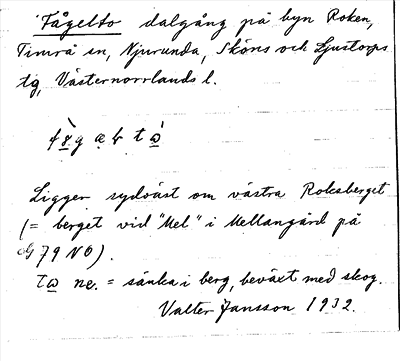 Fågelto dalgång på byn Roken,
Timrå sn, Njurunda, Sköns och Ljustorps
tg, Västernorrlands l.
Ligger sydväst om västra Roksberget
(= berget vid "Mel" i Mellangård på
79 NO).
ne. = sänka i berg, beväxt med skog.
Valter Jansson 1932.